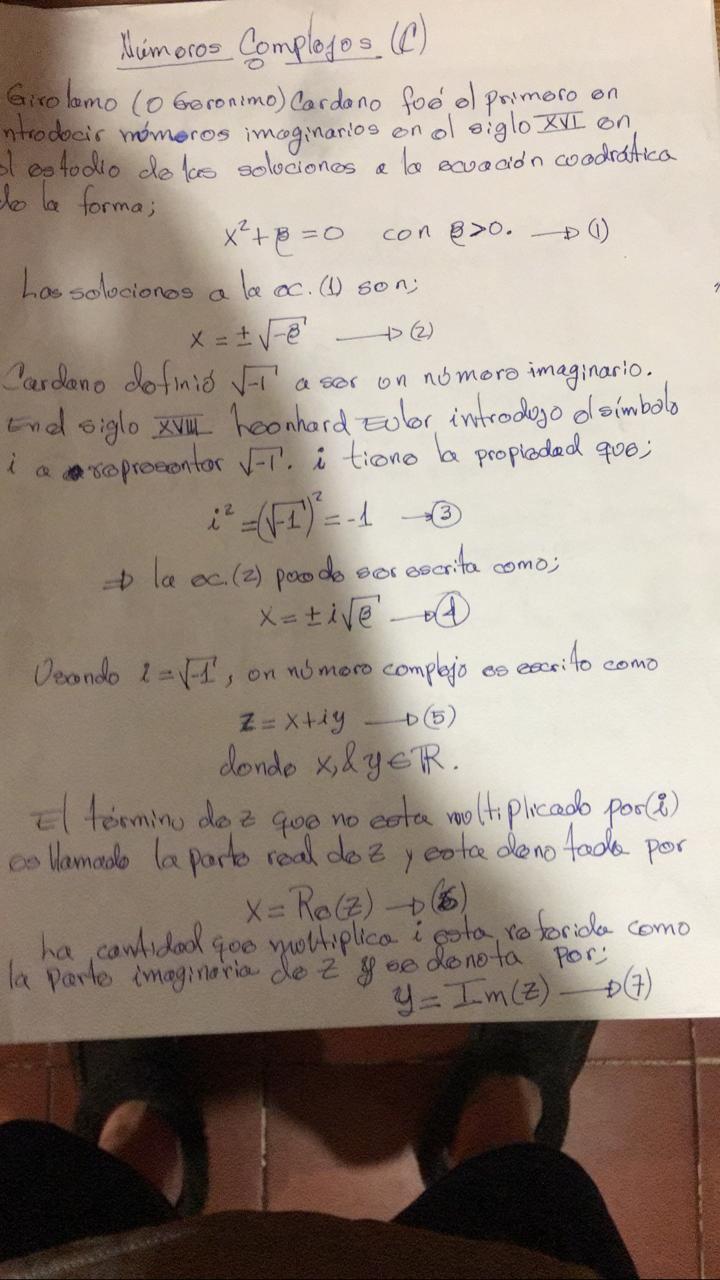 Números Complejos (C)
Girolamo (o Geronimo) Cardano fué el primero en
ntroducir números imaginarios en el siglo XVI en
el estudio de las soluciones a la ecuación cuadrática
de la forma;
x² + β = 0 con β > 0. → (1)
Las soluciones a la ec. (1) son;
x = ± √-β → (2)
Cardano definió √-1 a ser un número imaginario.
En el siglo XVIII Leonhard Euler introdujo el símbolo
i a representar √-1. i tiene la propiedad que;
i² = (√-1)² = -1 → (3)
⇒ la ec. (2) puede ser escrita como;
x = ± i√β → (4)
Usando i = √-1, un número complejo es escrito como
z = x + iy → (5)
donde x, & y ∈ ℝ.
El término de z que no esta multiplicado por (i)
es llamado la parte real de z y esta denotada por
x = Re(z) → (6)
La cantidad que multiplica i esta referida como
la parte imaginaria de z y se denota por;
y = Im(z) → (7)